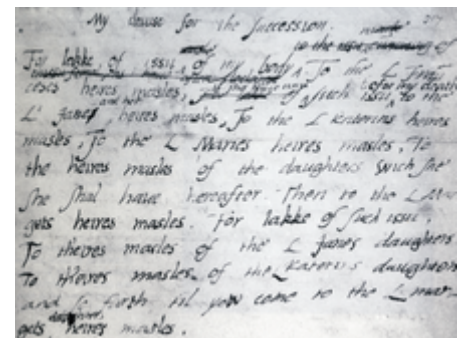 My devise for the Succession.
For lakke of issu of my body, To the L Fran
ceses heires masles, such issu, before my death to the
L' Janes and her heires masles, To the L Katerins heires
masles, To the L Maries heires masles, To
the heires masles of the daughters wich she
she shal have hereafter. Then to the L Mar
gets heires masles. For lakke of such issu,
To theires masles of the L Janes daughters
To theires masles of the L Katerins daughters
and so forth til yow come to the L Mar
gets daughters heires masles.